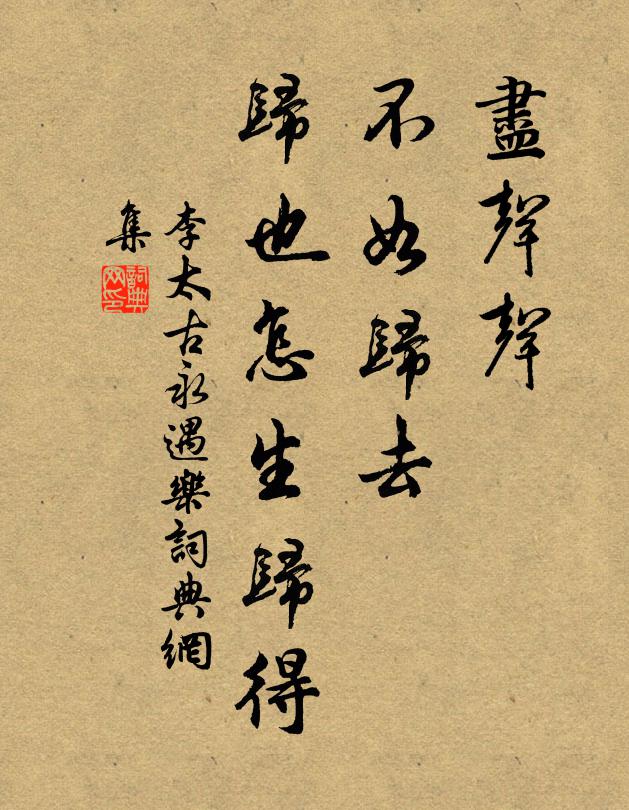 盡聲聲
不如歸去
歸也怎生歸得
李太古永遇樂詞典網
集
詞典
网印